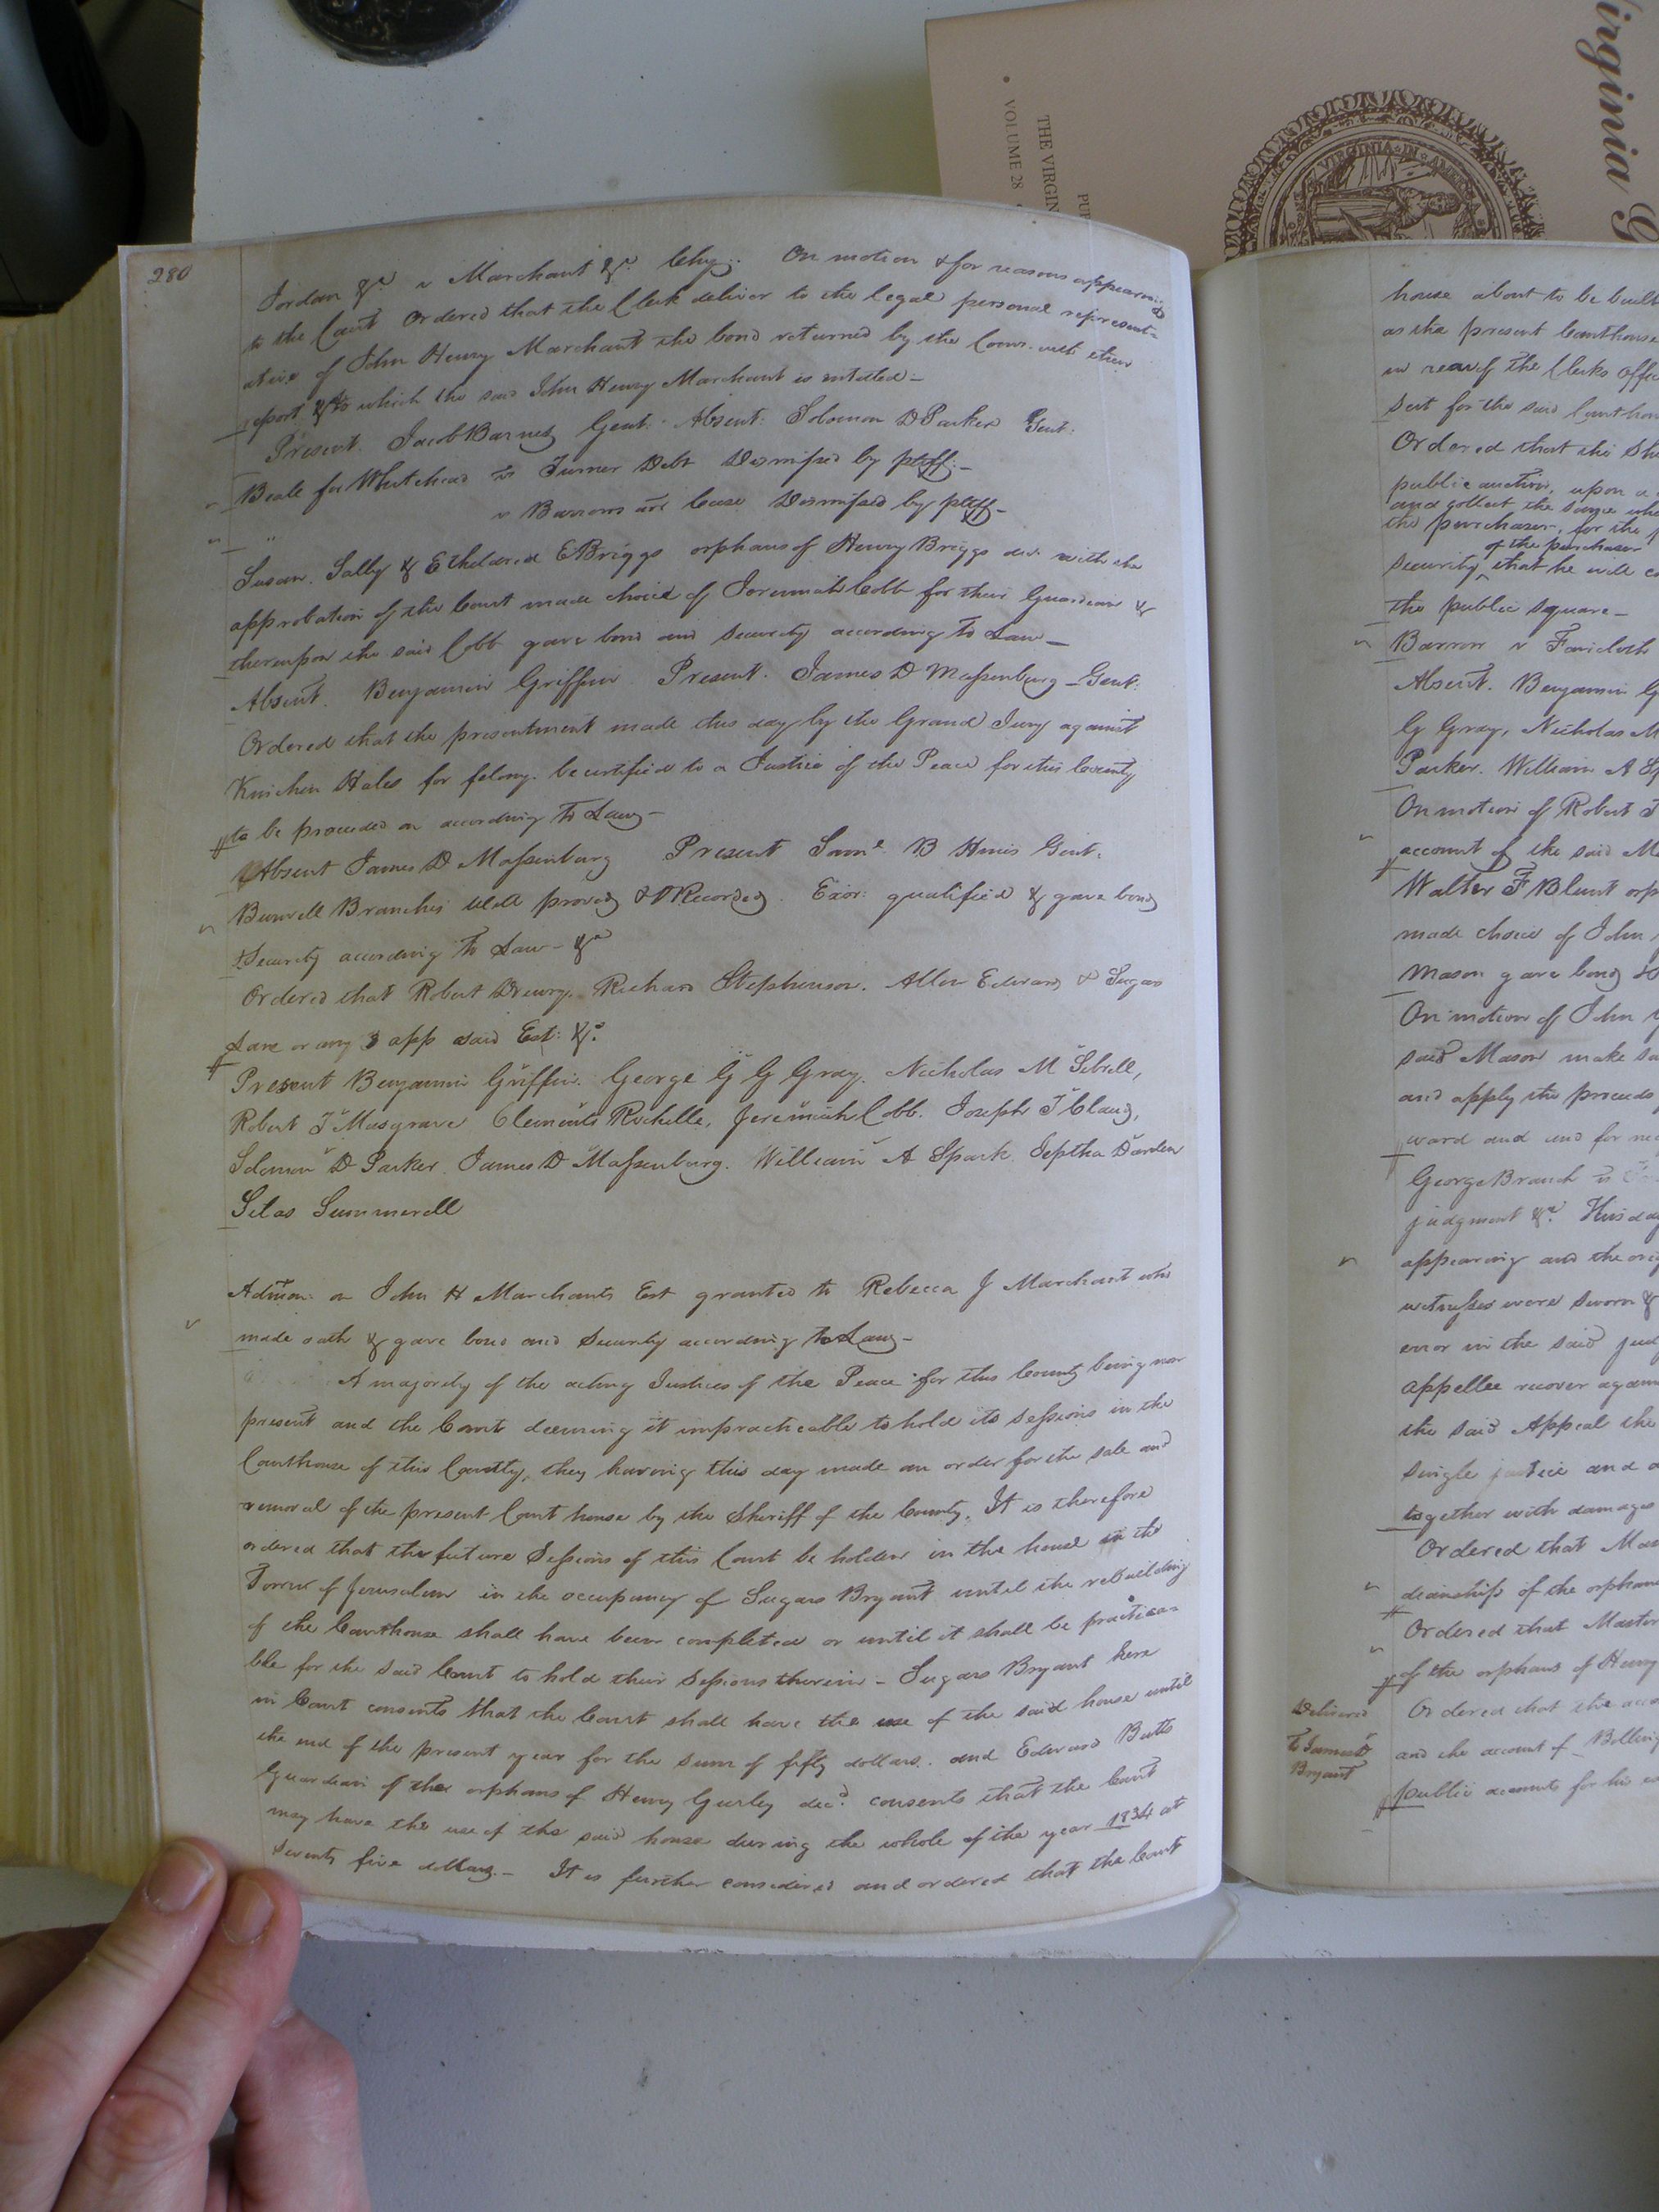 280
Jordan &c v Marchant &c. Chy. On motion & for reasons appearing
to the Court Ordered that the Clerk deliver to the legal personal represent-
ative of John Henry Marchant the bond returned by the Comr. with their
report &c to which the said John Henry Marchant is entitled -
Present. Jacob Barnes Gent. Absent. Solomon D Parker Gent.
Beale for Whitehead vs Turner Debt Dismissed by ptff. -
" v Barrow Case Dismissed by ptff -
Susan, Sally & Etheldred E Briggs orphans of Henry Briggs dec. with the
approbation of the Court made choice of Jeremiah Cobb for their Guardian &
thereupon the said Cobb gave bond and security according to Law -
Absent. Benjamin Griffin. Present. James D Massenburg - Gent.
Ordered that the presentment made this day by the Grand Jury against
Kinchen Hales for felony. be certified to a Justice of the Peace for this County
to be proceeded on according to Law -
Absent James D Massenburg Present Saml. B Hines Gent.
Burwell Branch's Will proved & ORecorded. Exor: qualified & gave bond
& Security according to Law - &c
Ordered that Robert Drewry, Richard Stephenson. Allen Edwards & Sugars
Lane or any 3 app said Est: &c.
Present Benjamin Griffin. George G G Gray. Nicholas M Sebrell,
Robert T Musgrave Clements Rochelle, Jeremiah Cobb. Joseph T Claud,
Solomon D Parker. James D Massenburg. William A Spark. Jeptha Darden
Silas Summerell
Admon: on John H Marchants Est granted to Rebecca J Marchant who
made oath & gave bond and Security according to Law -
A majority of the acting Justices of the Peace for this County being now
present and the Court deeming it impracticable to hold its sessions in the
Courthouse of this County, they having this day made an order for the sale and
removal of the present Court house by the Sheriff of the County. It is therefore
ordered that the future Sessions of this Court be holden in the house in the
Town of Jerusalem in the occupancy of Sugars Bryant until the rebuilding
of the Courthouse shall have been completed or until it shall be practica-
ble for the said Court to hold their Sessions therein - Sugars Bryant here
in Court consents that the Court shall have the use of the said house until
the end of the present year for the sum of fifty dollars. and Edward Butts
Guardian of the orphans of Henry Gurley decd. consents that the Court
may have the use of the said house during the whole of the year 1834 at
Seventy five dollars. - It is further considered and ordered that the Court
house about to be built
as the present Courthouse
in rear of the Clerks Offi
Seit for the said Courthou
Ordered that the Sh
public auction, upon a
and collect the same
the purchaser, for the
of the purchaser
Security, that he will
the public square -
Barrow v Faircloth
Absent. Benjamin G
G Gray, Nicholas M
Parker. William A Sp
On motion of Robert T
account of the said M
Walter F Blunt orp
made choice of John
Mason gave bond &
On motion of John
said Mason make sa
and apply the proceeds
ward and and for
George Branch vs
judgment &c. This da
appearing and the
witnesses were sworn &
error in the said jud
Appellee recover again
the said Appeal the
single justice and
together with damages
Ordered that Ma
deanship of the orphan
Ordered that Master
of the orphans of Henry
Ordered that the
and the account of Bolling
public accounts for his
Delivered
To James
Bryant
Virginia G
PU
THE VIRGIN
• VOLUME 28
VIRGINIA · IN · AME